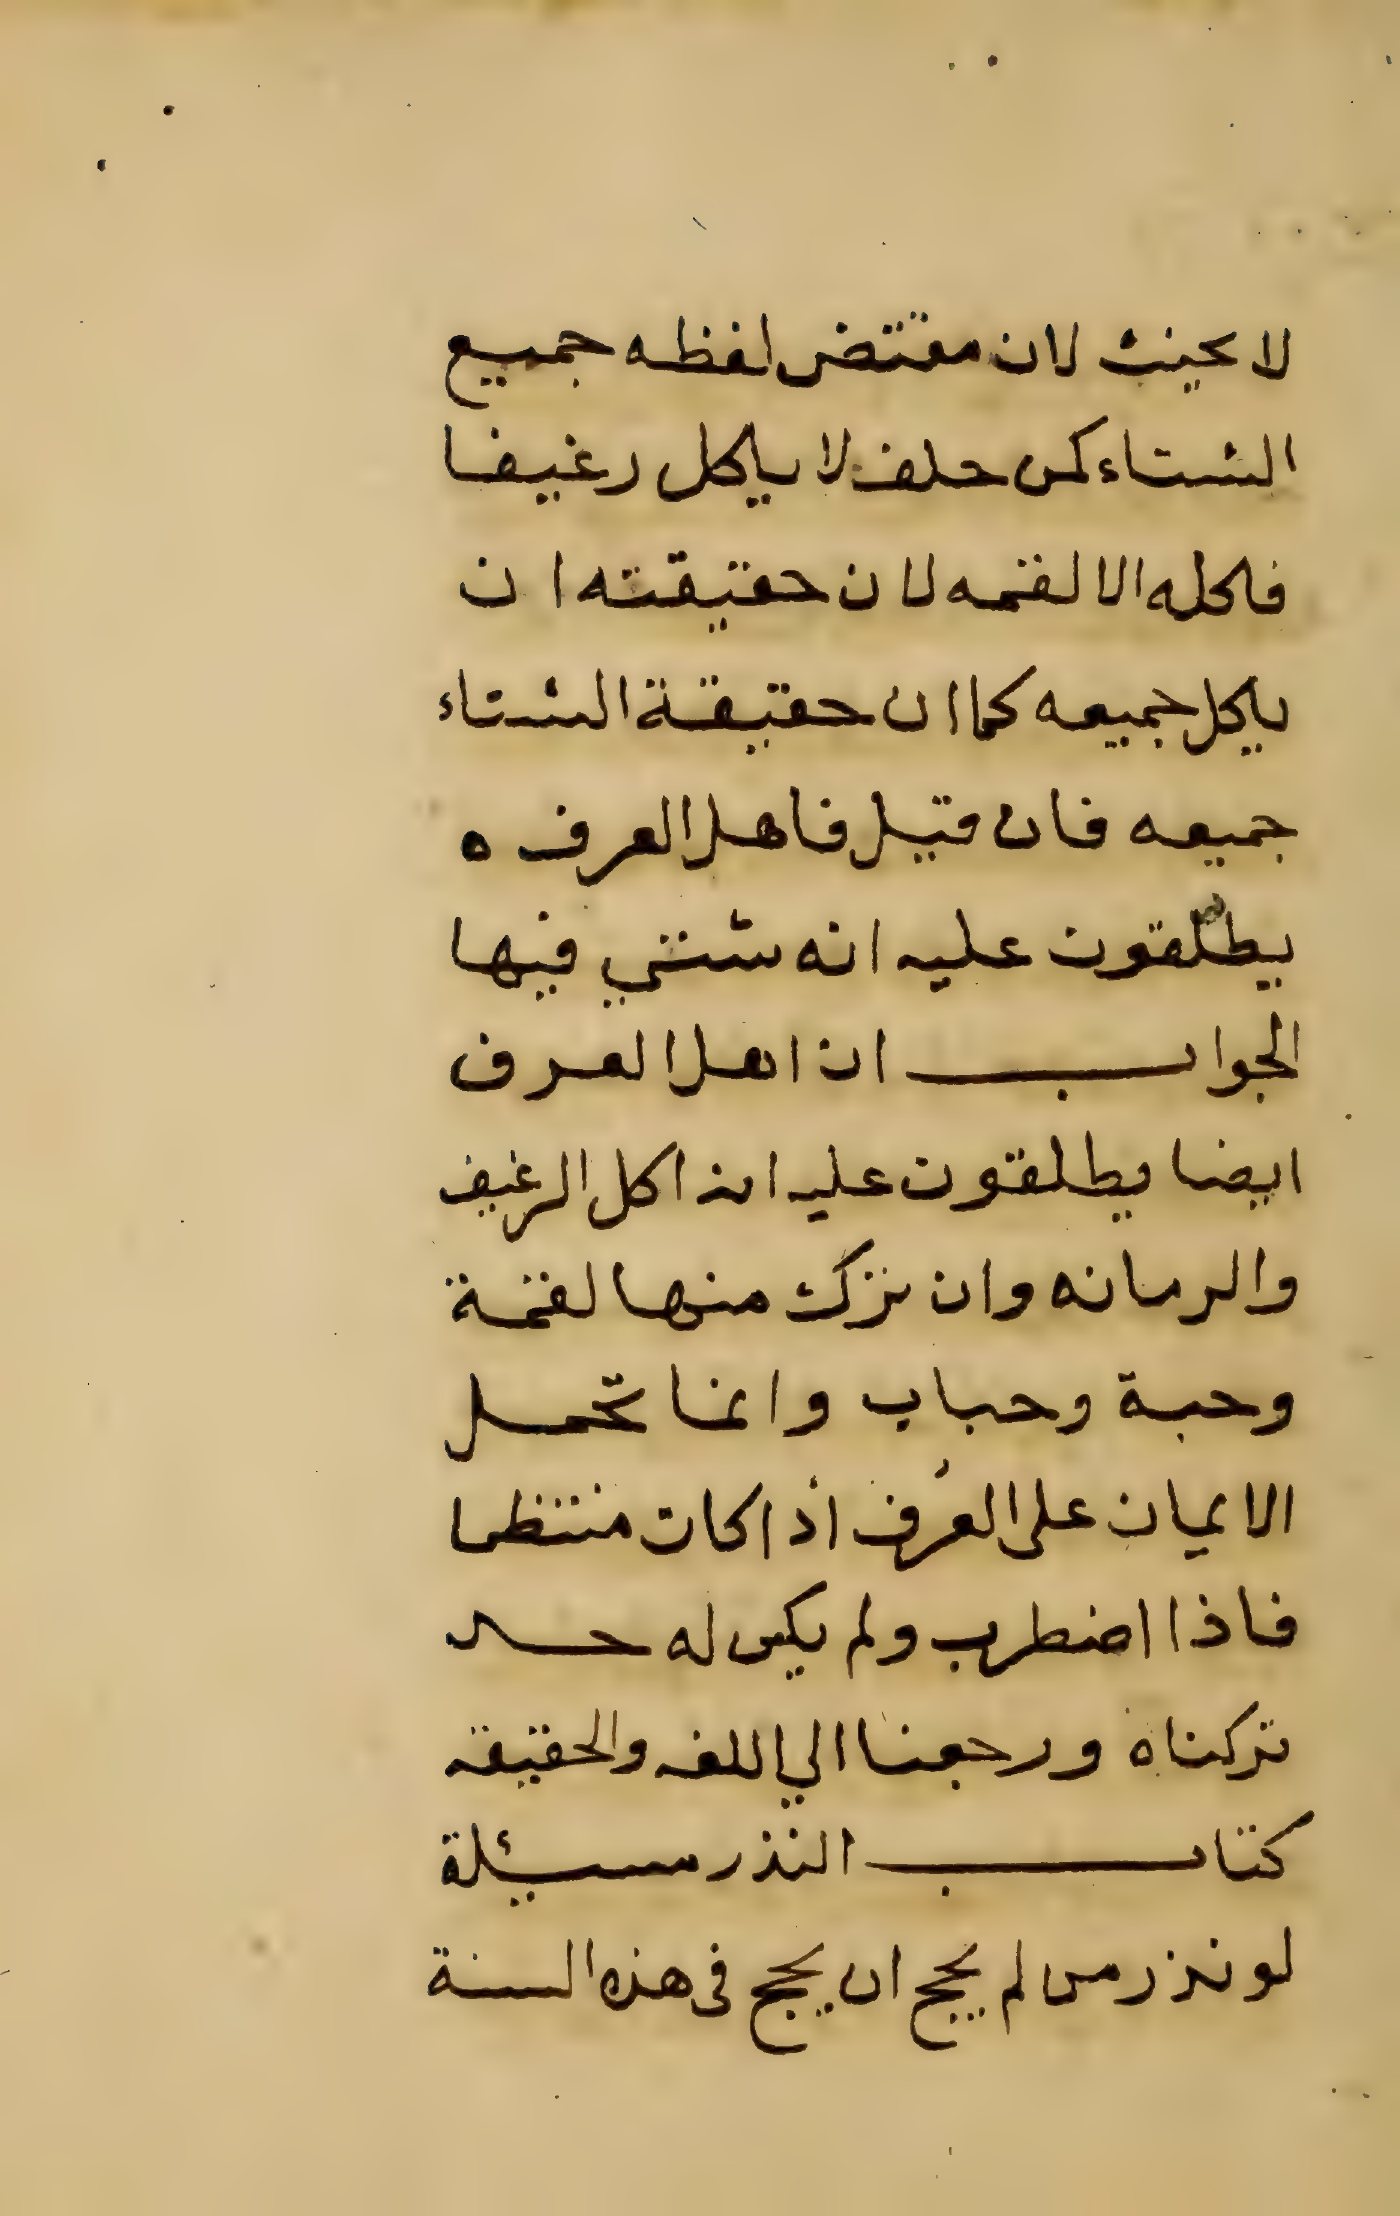 لا يحنث لان مقتضى لفظه جميع
الشتاء كمن حلف لا ياكل رغيفا
فاكله الا لقمه لان حقيقته ان
ياكل جميعه كما ان حقيقة الشتاء
جميعه فان قيل فاهل العرف ه
يطلقون عليه انه شتي فيها
الجواب ان اهل العرف
ايضا يطلقون عليه انه اكل الرغيف
والرمانه وان ترك منها لقمة
وحبة وحباب وانما تحمل
الايمان على العُرف اذا كان منتظما
فاذا اضطرب ولم يكن له حد
تركناه ورجعنا الي اللغه والحقيقه
كتاب النذر مسئلة
لو نذر من لم يحج ان يحج في هذه السنة